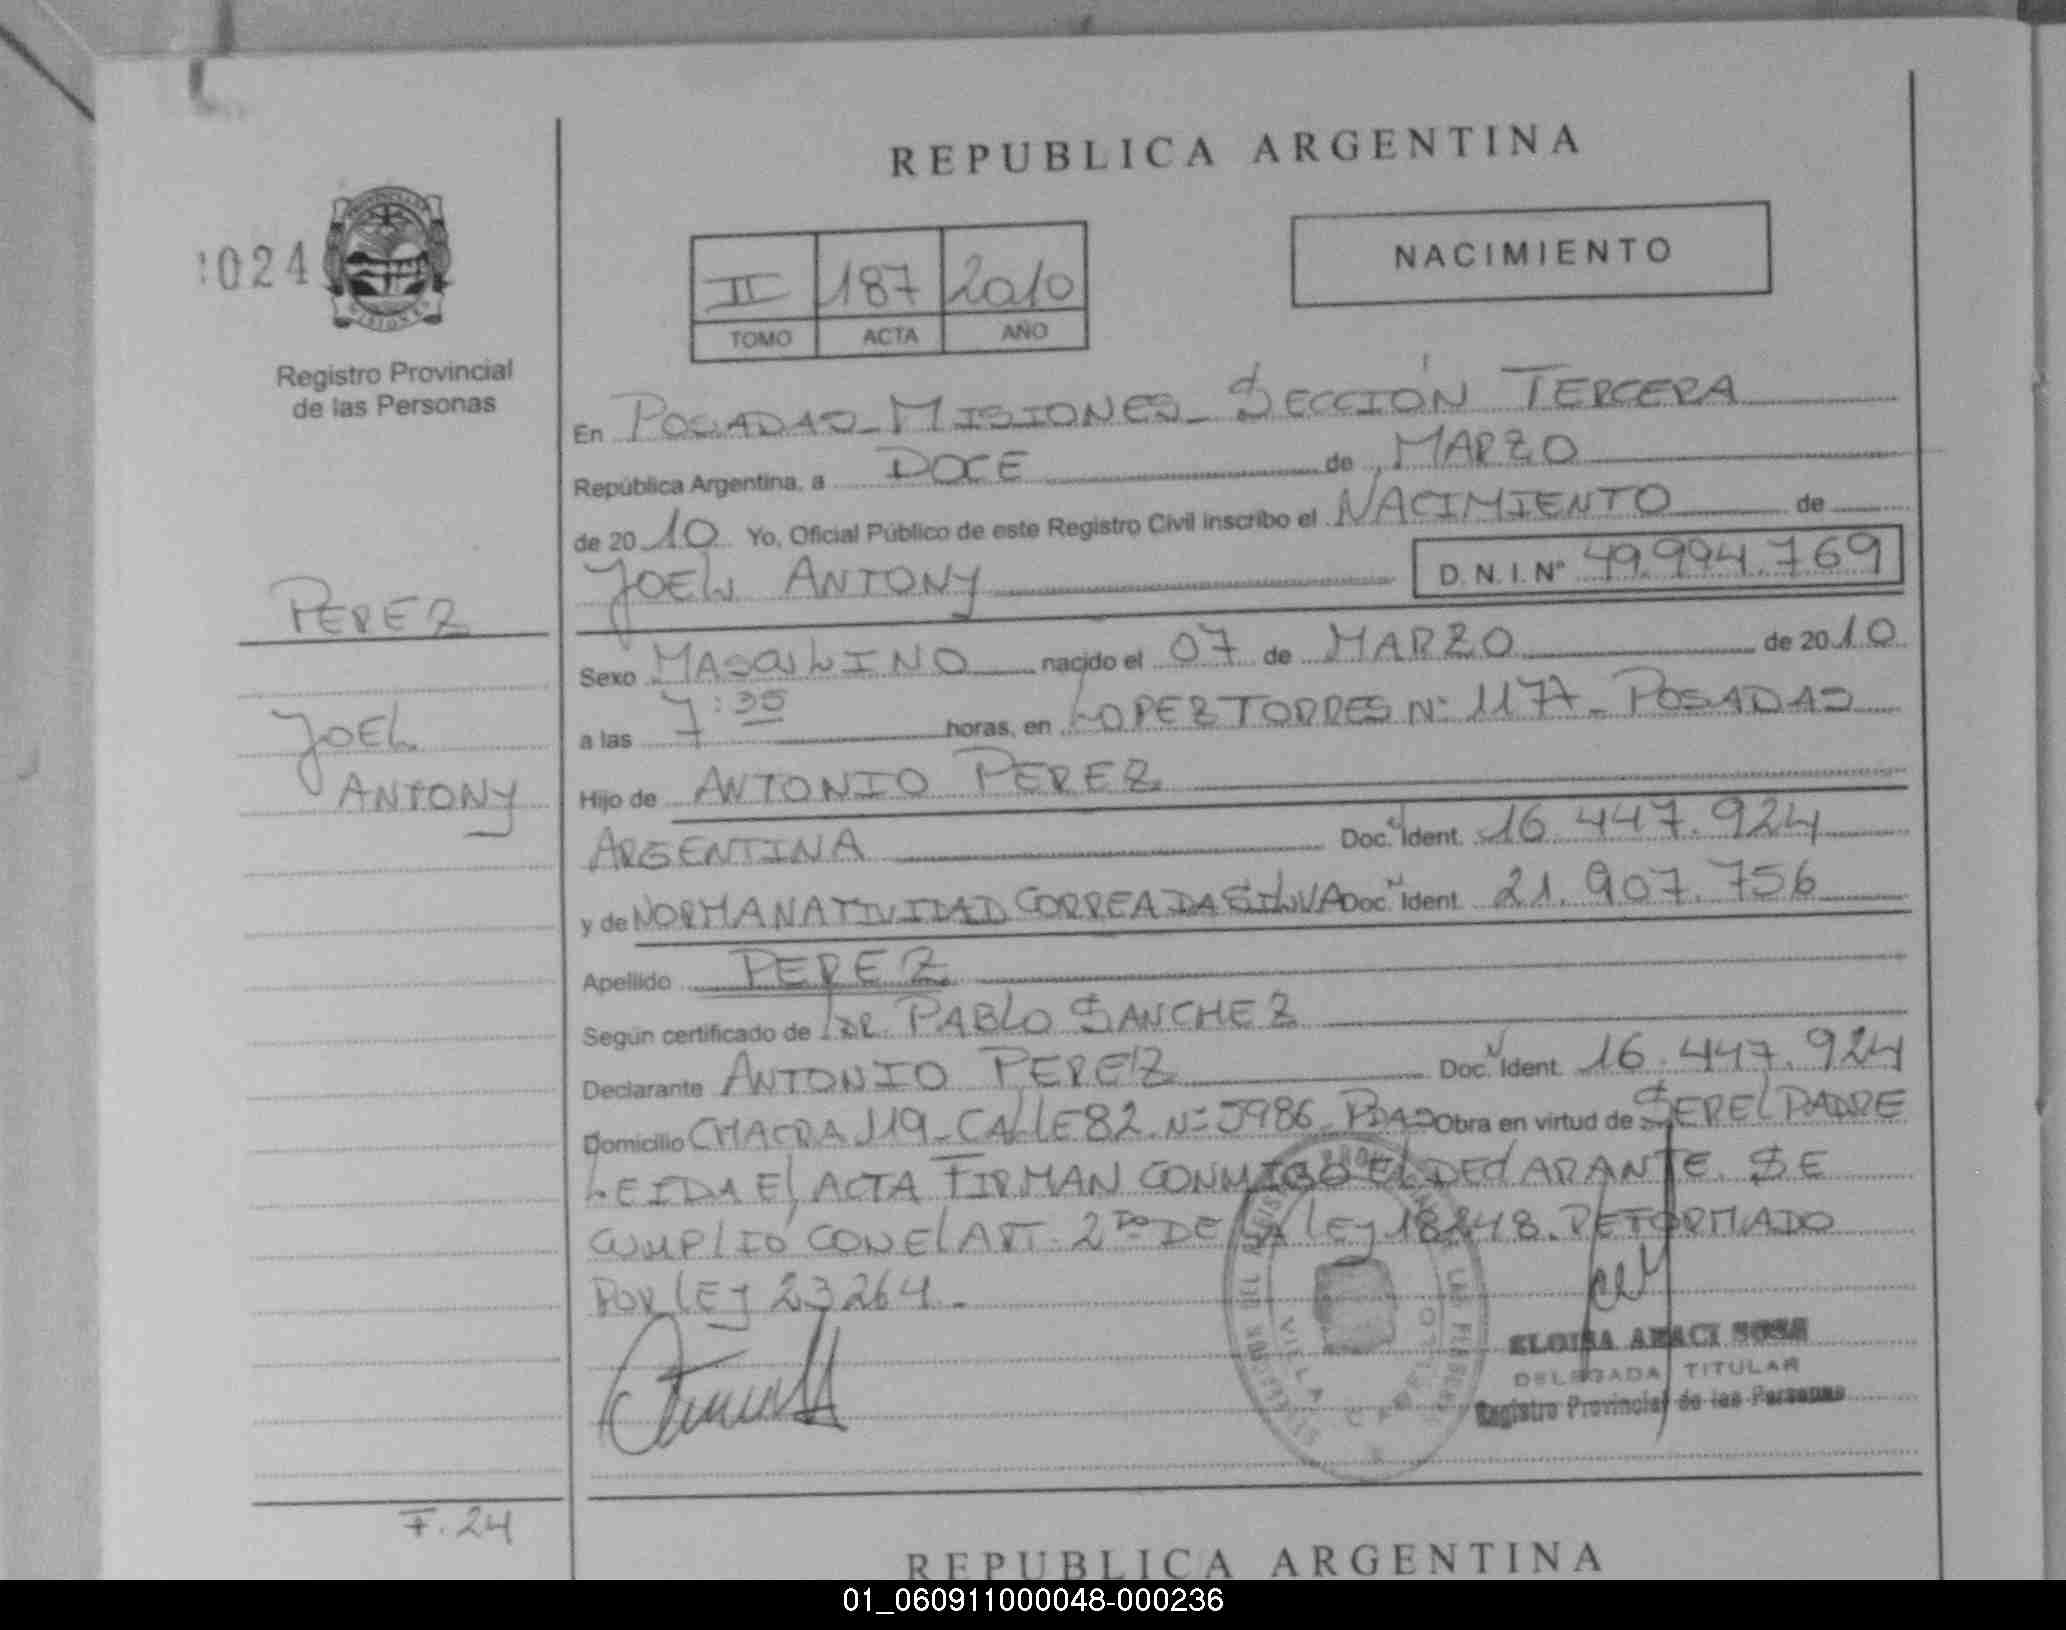 REPUBLICA ARGENTINA
NACIMIENTO
024
II 187 2010
TOMO ACTA AÑO
Registro Provincial
de las Personas
En POSADAS-MISIONES-SECCIÓN TERCERA
República Argentina, a DOCE de MARZO
de 2010 Yo, Oficial Público de este Registro Civil inscribo el NACIMIENTO de
JOEL ANTONY D.N.I. Nº 49.994.769
PEREZ
JOEL
ANTONY
Sexo MASCULINO nacido el 07 de MARZO de 2010
a las 7:35 horas, en LOPEZ TORRES Nº 1177- POSADAS
Hijo de ANTONIO PEREZ
ARGENTINA Doc. Ident. 16.447.924
y de NORMA NATIVIDAD CORREA DA SILVA Doc. Ident. 21.907.756
Apellido PEREZ
Según certificado de DR. PABLO SANCHEZ
Declarante ANTONIO PEREZ Doc. Ident. 16.447.924
Domicilio CHACRA 119-CALLE 82 Nº 5986-PDAS Obra en virtud de SER EL PADRE
LEIDA EL ACTA FIRMAN CONMIGO EL DECLARANTE. SE
CUMPLIÓ CON EL ART. 2DO DE LA LEY 18248. REFORMADO
POR LEY 23264.-
VILLA CABELLO
ELOISA ARACI SOSA
DELEGADA TITULAR
Registro Provincial de las Personas
F. 24
REPUBLICA ARGENTINA
01_060911000048-000236